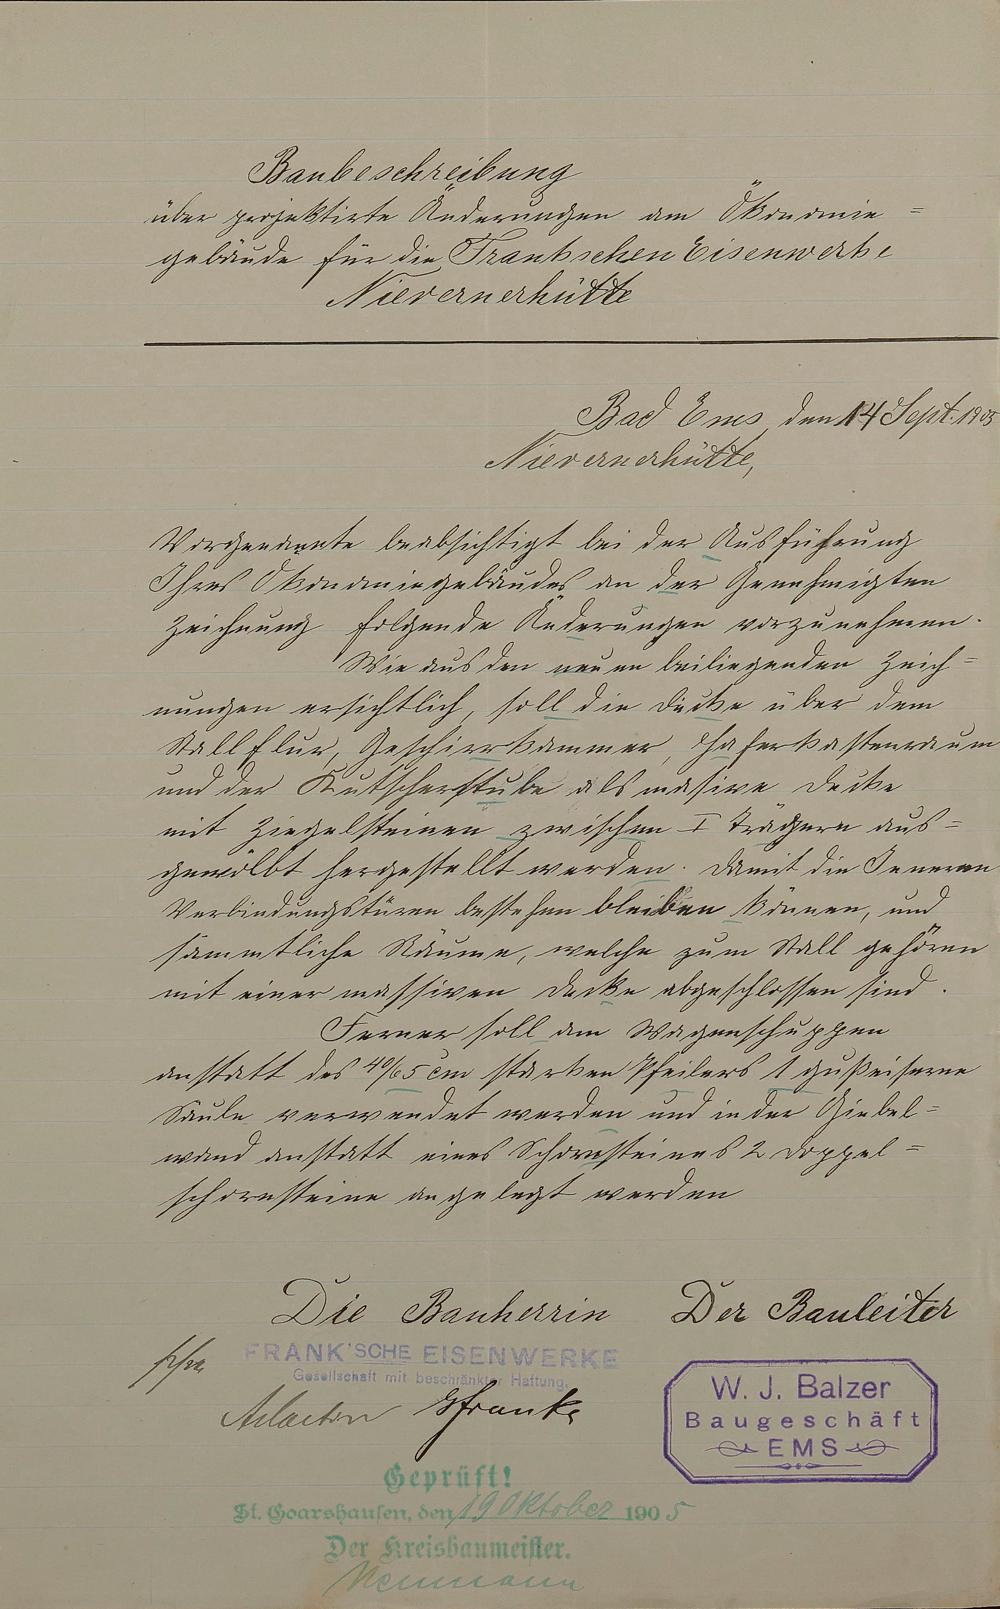 Baubeschreibung
über projektirte Änderungen am Ökonomie=
gebäude für die Frankschen Eisenwerke
Nievernerhütte
Bad Ems, den 14 Sept. 1905
Nievernerhütte,
Vorgenannte beabsichtigt bei der Ausführung
Ihres Ökonomiegebäudes an der Genehmigten
Zeichnung folgende Änderungen vorzunehmen.
Wie aus den neuen beiliegenden Zeich=
nungen ersichtlich, soll die Decke über dem
Stallflur, Geschirrkammer, Haferkastenraum
und der Kutscherstube als masive Decke
mit Ziegelsteinen zwischen I Trägern aus=
gewölbt hergestellt werden. Damit die Inneren
Verbindungstüren bestehen bleiben können, und
sämmtliche Räume, welche zum Stall gehören
mit einer massiven Decke abgeschlossen sind.
Ferner soll am Wagenschuppen
anstatt des 40/65 cm starken Pfeilers 1 gußeiserne
Säule verwendet werden und in der Giebel=
wand anstatt eines Schornsteines 2 Doppel=
schornsteine angelegt werden
Die Bauherrin Der Bauleiter
ppa
FRANK'SCHE EISENWERKE
Gesellschaft mit beschränkter Haftung.
GFranke
W. J. Balzer
Baugeschäft
EMS
Geprüft!
St. Goarshausen, den 19 Oktober 1905
Der Kreisbaumeister.
Neumann